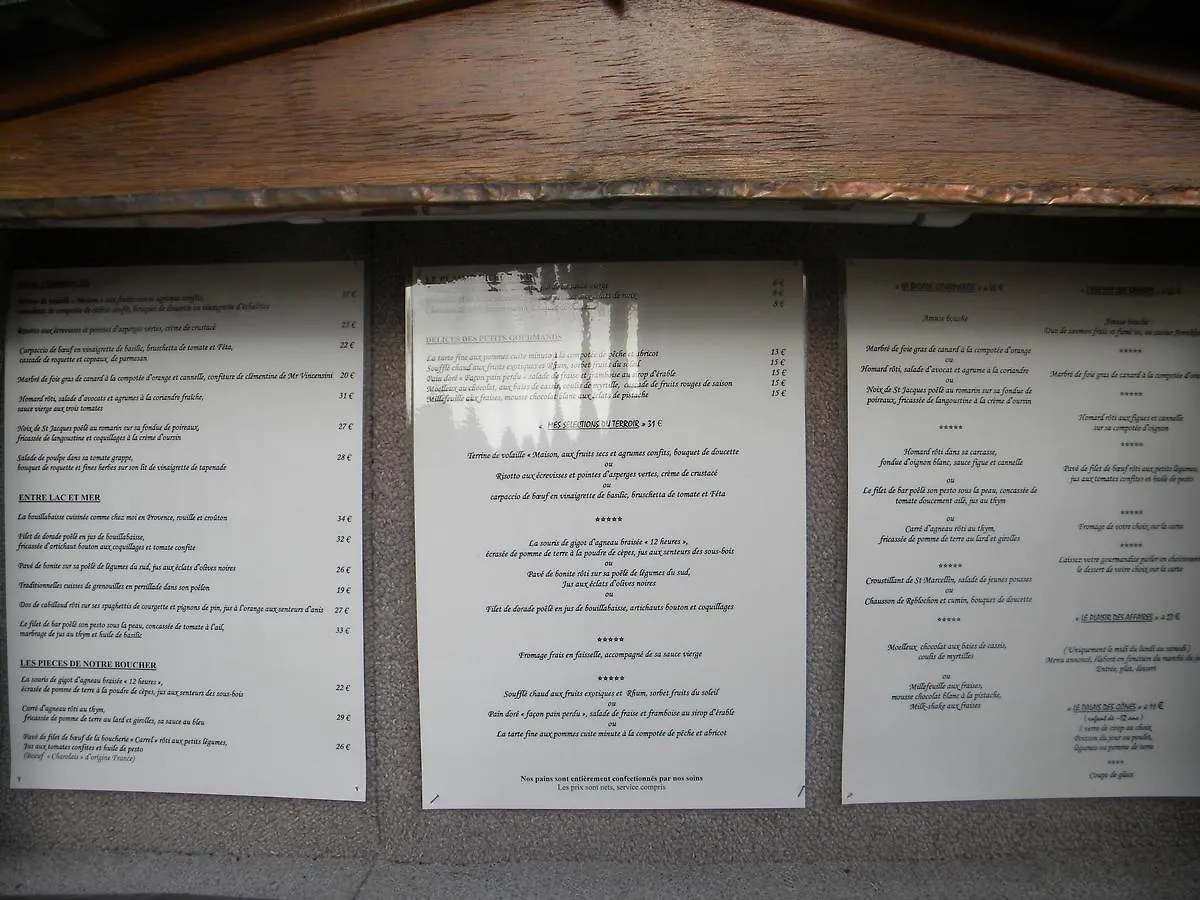 Terrine de volaille « Maison » aux fruits secs et agrumes confits, 17 €
Risotto aux écrevisses et pointes d'asperges vertes, crème de crustacé 23 €
Carpaccio de bœuf en vinaigrette de basilic, bruschetta de tomate et Fêta, 22 €
cascade de roquette et copeaux de parmesan
Marbré de foie gras de canard à la compotée d'orange et cannelle, confiture de clémentine de Mr Vincensini 20 €
Homard rôti, salade d'avocats et agrumes à la coriandre fraîche, 31 €
sauce vierge aux trois tomates
Noix de St Jacques poêlé au romarin sur sa fondue de poireaux, 27 €
fricassée de langoustine et coquillages à la crème d'oursin
Salade de poulpe dans sa tomate grappe, 28 €
bouquet de roquette et fines herbes sur son lit de vinaigrette de tapenade
ENTRE LAC ET MER
La bouillabaisse cuisinée comme chez moi en Provence, rouille et croûton 34 €
Filet de dorade poêlé en jus de bouillabaisse, 32 €
fricassée d'artichaut bouton aux coquillages et tomate confite
Pavé de bonite sur sa poêlé de légumes du sud, jus aux éclats d'olives noires 26 €
Traditionnelles cuisses de grenouilles en persillade dans son poêlon 19 €
Dos de cabillaud rôti sur ses spaghettis de courgette et pignons de pin, jus à l'orange aux senteurs d'anis 27 €
Le filet de bar poêlé son pesto sous la peau, concassée de tomate à l'ail, 33 €
marbrage de jus au thym et huile de basilic
LES PIECES DE NOTRE BOUCHER
La souris de gigot d'agneau braisée « 12 heures », 22 €
écrasée de pomme de terre à la poudre de cèpes, jus aux senteurs des sous-bois
Carré d'agneau rôti au thym, 29 €
fricassée de pomme de terre au lard et girolles, sa sauce au bleu
Pavé de filet de bœuf de la boucherie « Carrel » rôti aux petits légumes, 26 €
Jus aux tomates confites et huile de pesto
(bœuf « Charolais » d'origine France)
sauce vierge 6 €
8 €
8 €
DELICES DES PETITS GOURMANDS
La tarte fine aux pommes cuite minute à la compotée de pêche et abricot 13 €
Soufflé chaud aux fruits exotiques et Rhum, sorbet fruits du soleil 15 €
Pain doré « Façon pain perdu » salade de fraise et framboise au sirop d'érable 15 €
Moelleux au chocolat, aux baies de cassis, coulis de myrtille, cascade de fruits rouges de saison 15 €
Millefeuille aux fraises, mousse chocolat blanc aux éclats de pistache 15 €
« MES SELECTIONS DU TERROIR » 31 €
Terrine de volaille « Maison, aux fruits secs et agrumes confits, bouquet de doucette
ou
Risotto aux écrevisses et pointes d'asperges vertes, crème de crustacé
ou
carpaccio de bœuf en vinaigrette de basilic, bruschetta de tomate et Fêta
*****
La souris de gigot d'agneau braisée « 12 heures »,
écrasée de pomme de terre à la poudre de cèpes, jus aux senteurs des sous-bois
ou
Pavé de bonite rôti sur sa poêlé de légumes du sud,
Jus aux éclats d'olives noires
ou
Filet de dorade poêlé en jus de bouillabaisse, artichauts bouton et coquillages
*****
Fromage frais en faisselle, accompagné de sa sauce vierge
*****
Soufflé chaud aux fruits exotiques et Rhum, sorbet fruits du soleil
ou
Pain doré « façon pain perdu », salade de fraise et framboise au sirop d'érable
ou
La tarte fine aux pommes cuite minute à la compotée de pêche et abricot
Nos pains sont entièrement confectionnés par nos soins
Les prix sont nets, service compris
Amuse bouche
Marbré de foie gras de canard à la compotée d'orange
ou
Homard rôti, salade d'avocat et agrume à la coriandre
ou
Noix de St Jacques poêlé au romarin sur sa fondue de
poireaux, fricassée de langoustine à la crème d'oursin
*****
Homard rôti dans sa carcasse,
fondue d'oignon blanc, sauce figue et cannelle
ou
Le filet de bar poêlé son pesto sous la peau, concassée de
tomate doucement ailé, jus au thym
ou
Carré d'agneau rôti au thym,
fricassée de pomme de terre au lard et girolles
*****
Croustillant de St Marcellin, salade de jeunes pousses
ou
Chausson de Reblochon et cumin, bouquet de doucette
*****
Moelleux chocolat aux baies de cassis,
coulis de myrtilles
ou
Millefeuille aux fraises,
mousse chocolat blanc à la pistache,
Milk-shake aux fraises
Amuse bouche
Duo de saumon frais et fumé
*****
Marbré de foie gras de canard à la compotée
*****
Homard rôti aux figues et cannelle
sur sa compotée d'oignon
*****
Pavé de filet de bœuf rôti aux petits légumes,
jus aux tomates confites et huile de pesto
*****
Fromage de votre choix sur la carte
*****
Laissez votre gourmandise parler en choisissant
le dessert de votre choix sur la carte
« LE PLAISIR DES AFFAIRES » à 23 €
(Uniquement le midi du lundi au samedi)
Menu annoncé, élaboré en fonction du marché
Entrée, plat, dessert
« LE PALAIS DES GÔNES » à 11 €
(enfant de -12 ans)
1 verre de sirop au choix
Poisson du jour ou poulet,
légumes ou pomme de terre
****
Coupe de glace